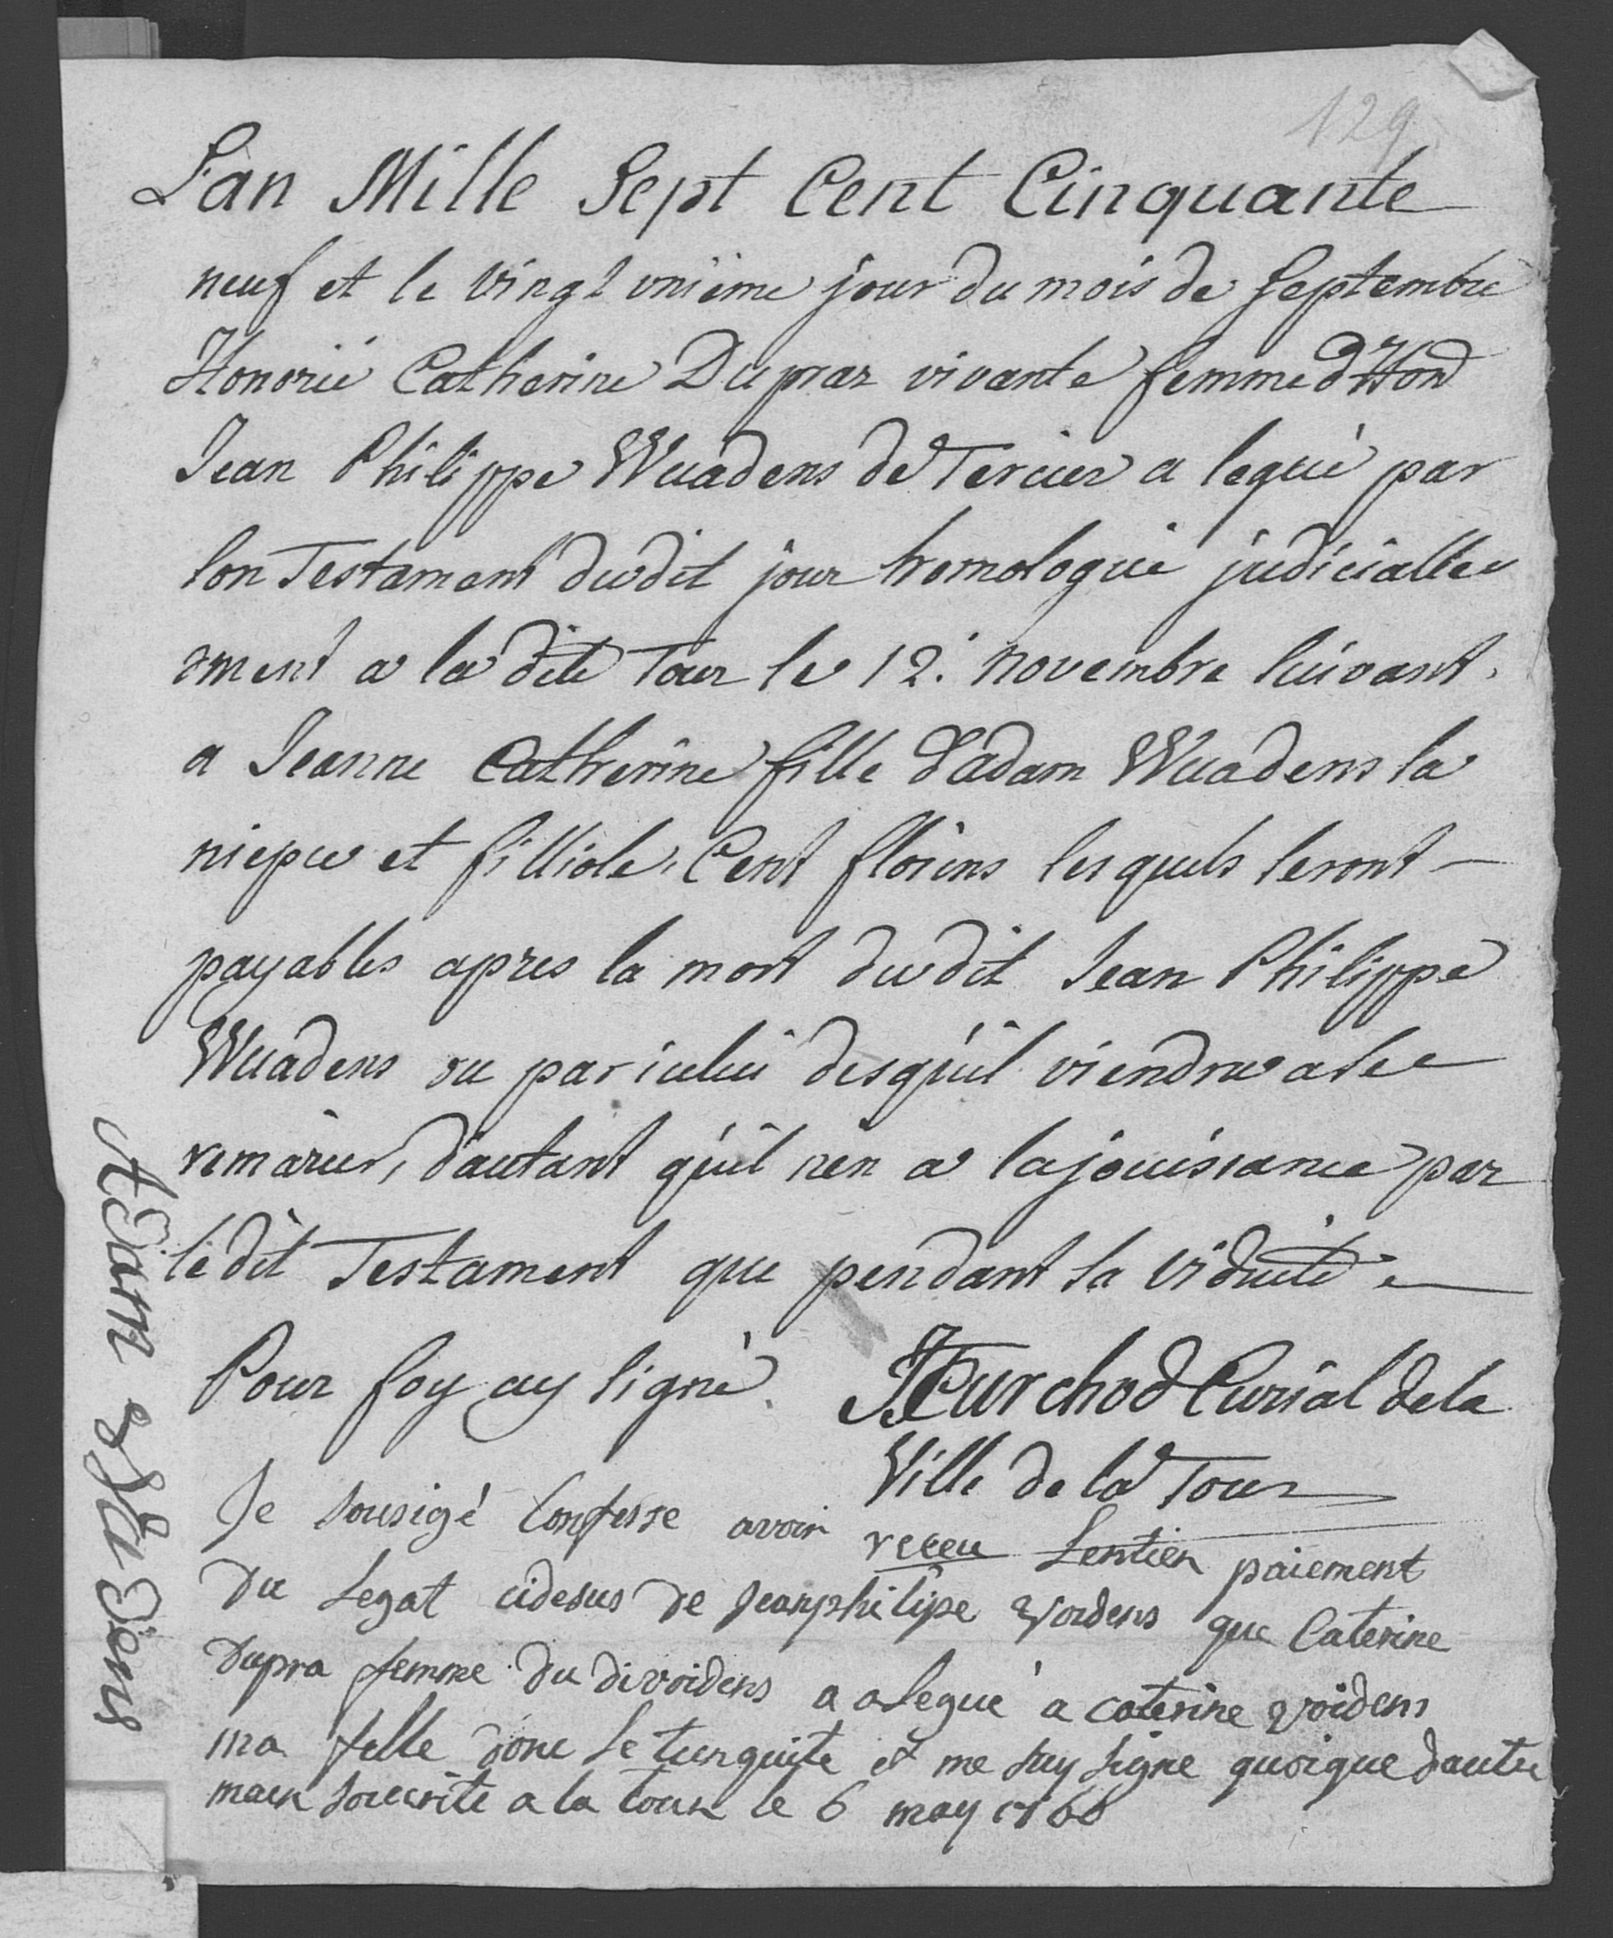 129
L'an Mille Sept Cent Cinquante
neuf et le vingt uniéme jour du mois de Septembre
Honoréé Catherine Duprar vivante femme d'Hon͞d
Jean Philippe Wuadens de Tercier a legué par
son Testament dudit jour homologué judiciallee
ment a la dite Tour le 12. novembre suivant,
a Jeanne Catherine fille d'adam Wuadens sa
niepce et filliole, Cent florins lesquels seront
payables apres la mort dudit Jean Philippe
Wuadens ou par icelui desqu'il viendra a se
remarier, d'autant qu'il n'en a la jouissance par
le dit Testament que pendant sa viduité
Pour foy ay signé. JFCurchod Curial de la
Ville de la Tour
Je sousigé Confesse avoir receu Lentier paiement
du Legat cidesus de Jeanphilipe voidens que Caterine
dupra femme du divoidens a alegué a caterine voidens
ma felle donc Le tienquite et me suy signe quoique dautre
main soucrite a la tour le 6 may 1766
Adam Vuadens